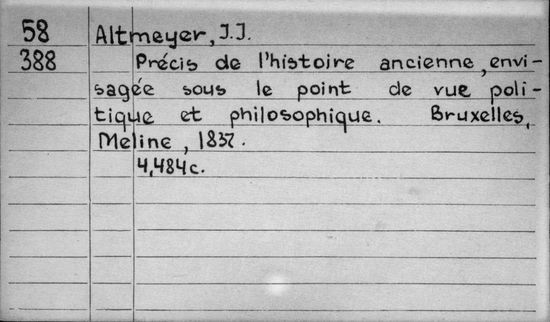 58 Altmeyer, J.J.
388 Précis de l'histoire ancienne, envi-
sagée sous le point de vue poli-
tique et philosophique. Bruxelles,
Meline, 1837.
4,484c.